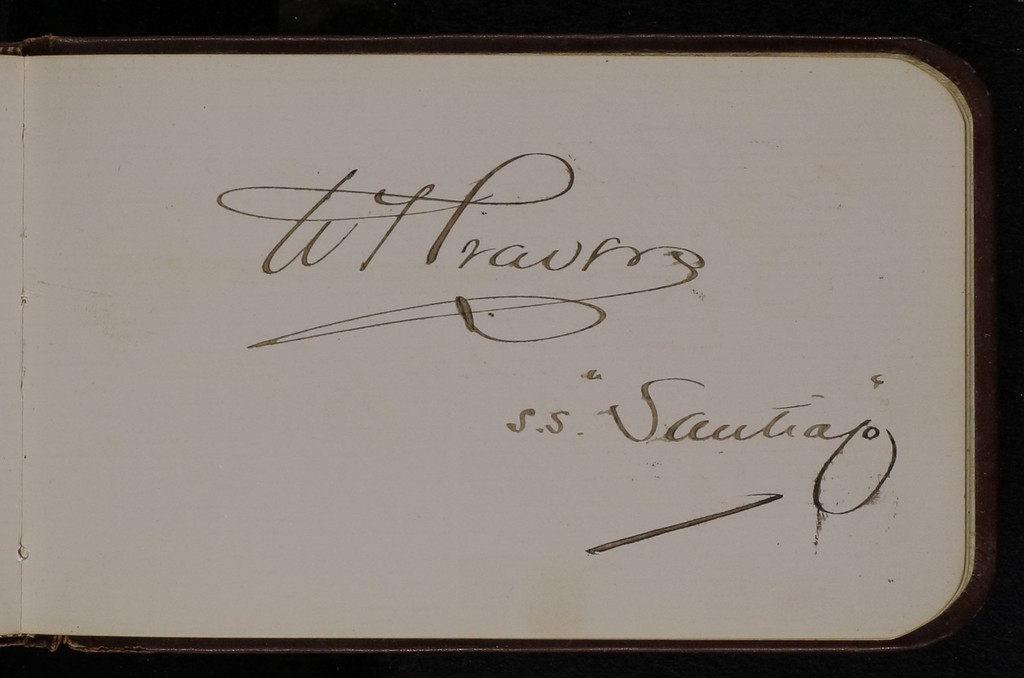 W Travers
s.s. "Santiago"